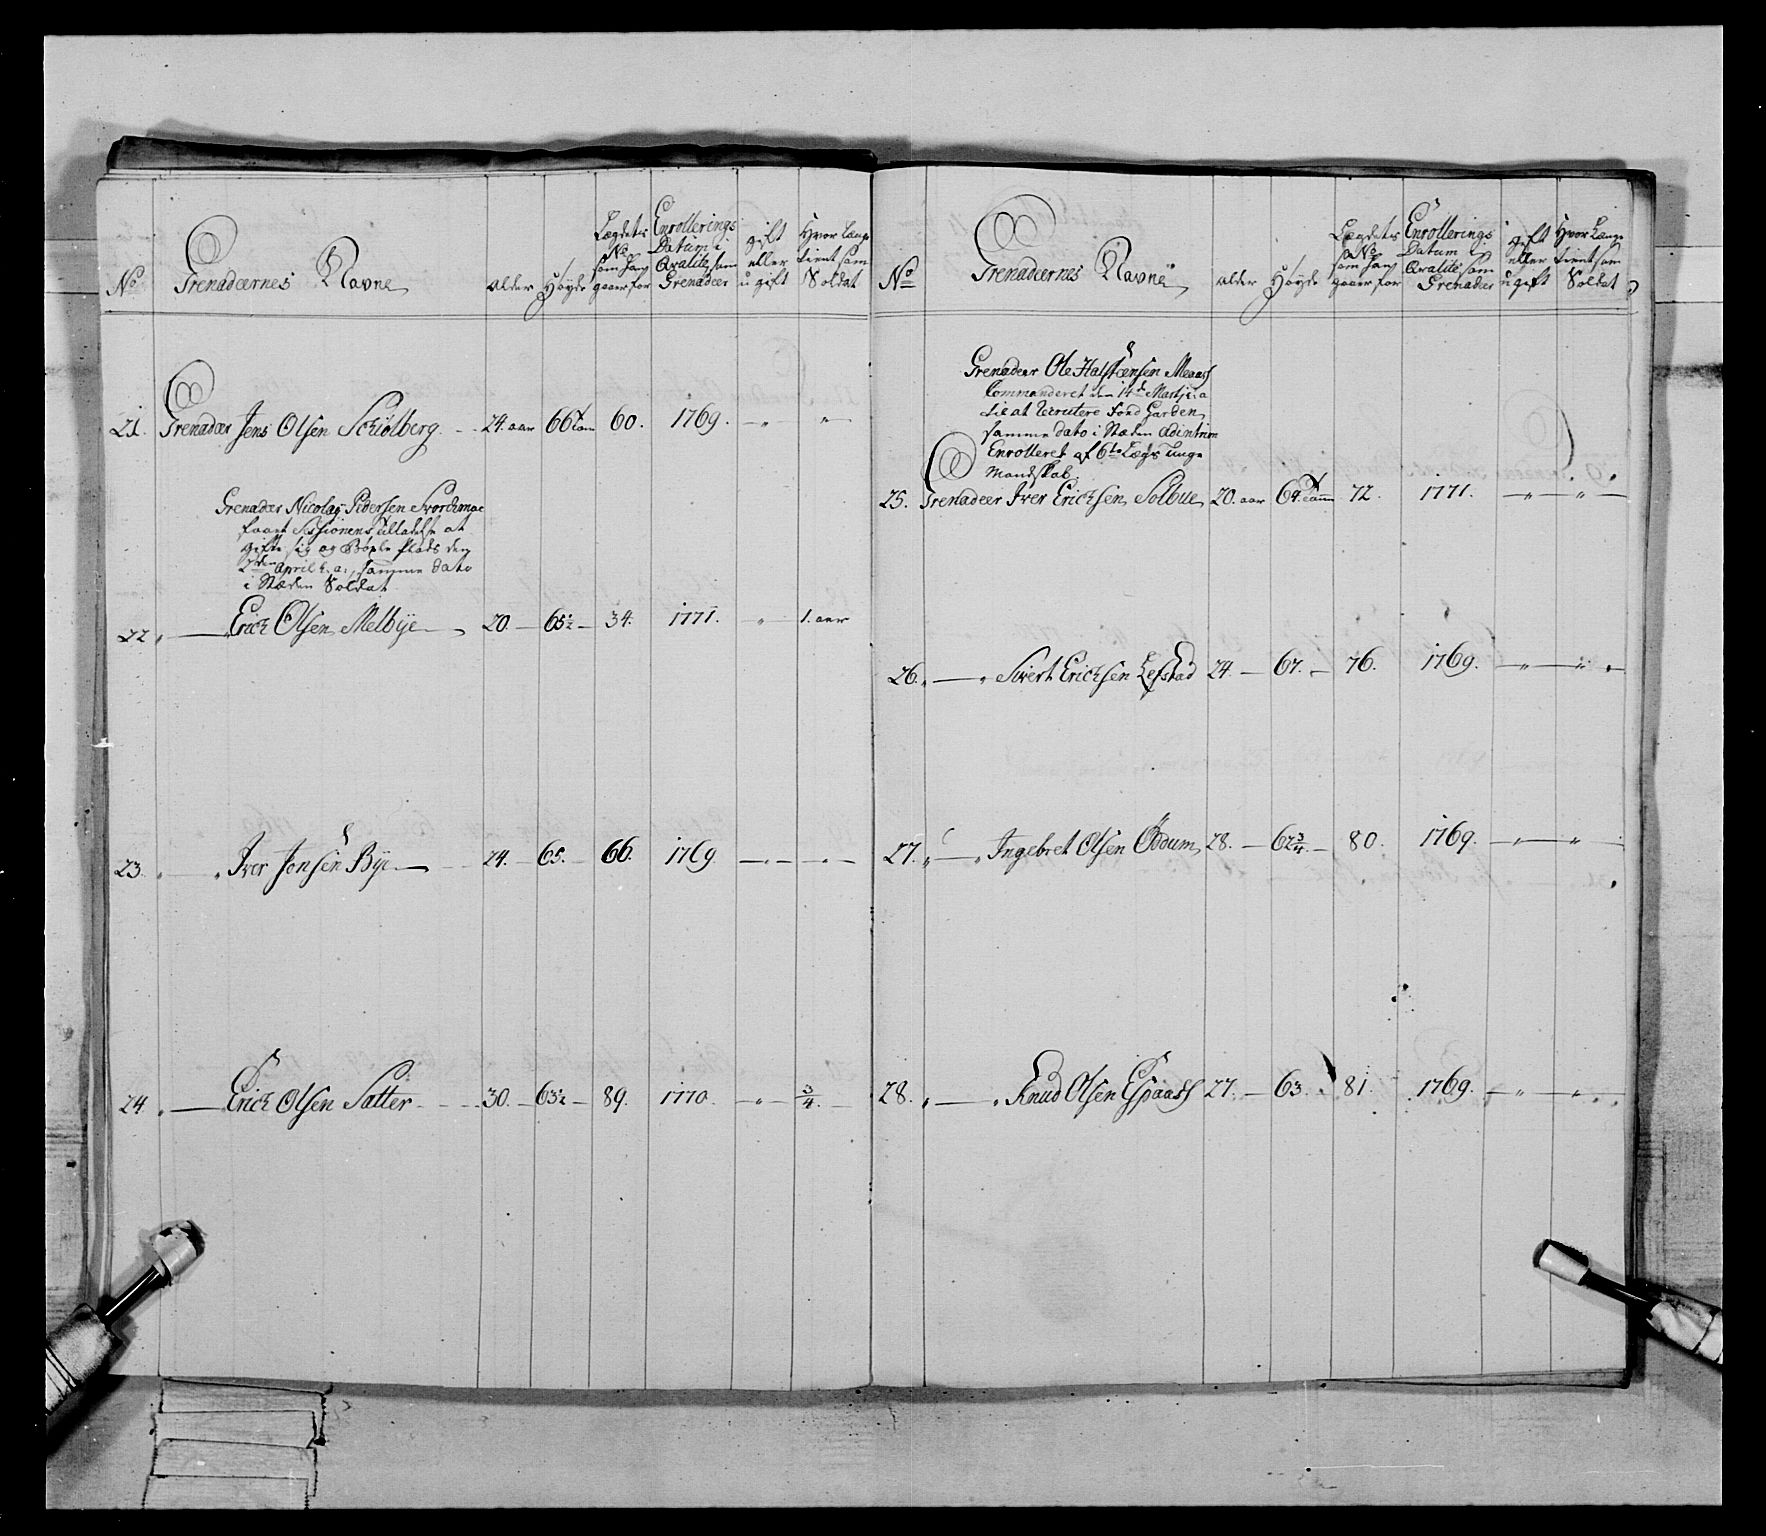 No
Grenadeernes Navne
alder
Höyde
Lægdets
No
som han
gaaer for
Enrollerings
Datum i
Qvalite som
Grenadeer
gift
eller
ugift
Hvor Længe
tient som
Soldat
21. Grenadeer Jens Olsen Schiølberg 24. aar 66 Tom 60. 1769. — „ „
Grenadeer Nicolay Pedersen Svorchmoe
faaet Sessionens tilladelse at
gifte sig og Böxle Plads den
2den April h: a:, samme dato
i Stæden Soldat
22 „ — Erich Olsen Melbye 20. — 65½ — 34. 1771. „ 1. aar
23. „ „ Iver Jonsen Bye 24. — 65. — 66. 1769 — „ — „ —
24 „ — Erich Olsen Sætter 30. — 63½ — 89. 1770. — „ — ¾.
No
Grenadeernes Navne
alder
Höyde
Lægdets
No
som han
gaaer for
Enrollerings
Datum i
Qvalite som
Grenadeer
gift
eller
ugift
Hvor Længe
tient som
Soldat
Grenadeer Ole Halstensen Meaas
Commanderet den 14de Martji: a
til at recrutere Fond Garden
samme dato i Stæden
Enrolleret af 6te Lægs unge
Mandskab
25. Grenadeer Iver Erichsen Solbue 20. aar 64 Tomm 72. 1771. — „ — „ —
26. „ — „ Sivert Erichsen Lefstad 24. — 67. — 76. 1769. — „ — „
27. „ — „ Ingebret Olsen Öddum 28. — 62¾ — 80. 1769. — „ — „ —
28. „ — „ Knud Olsen Espaas 27. — 63. 81. 1769. — „ — „